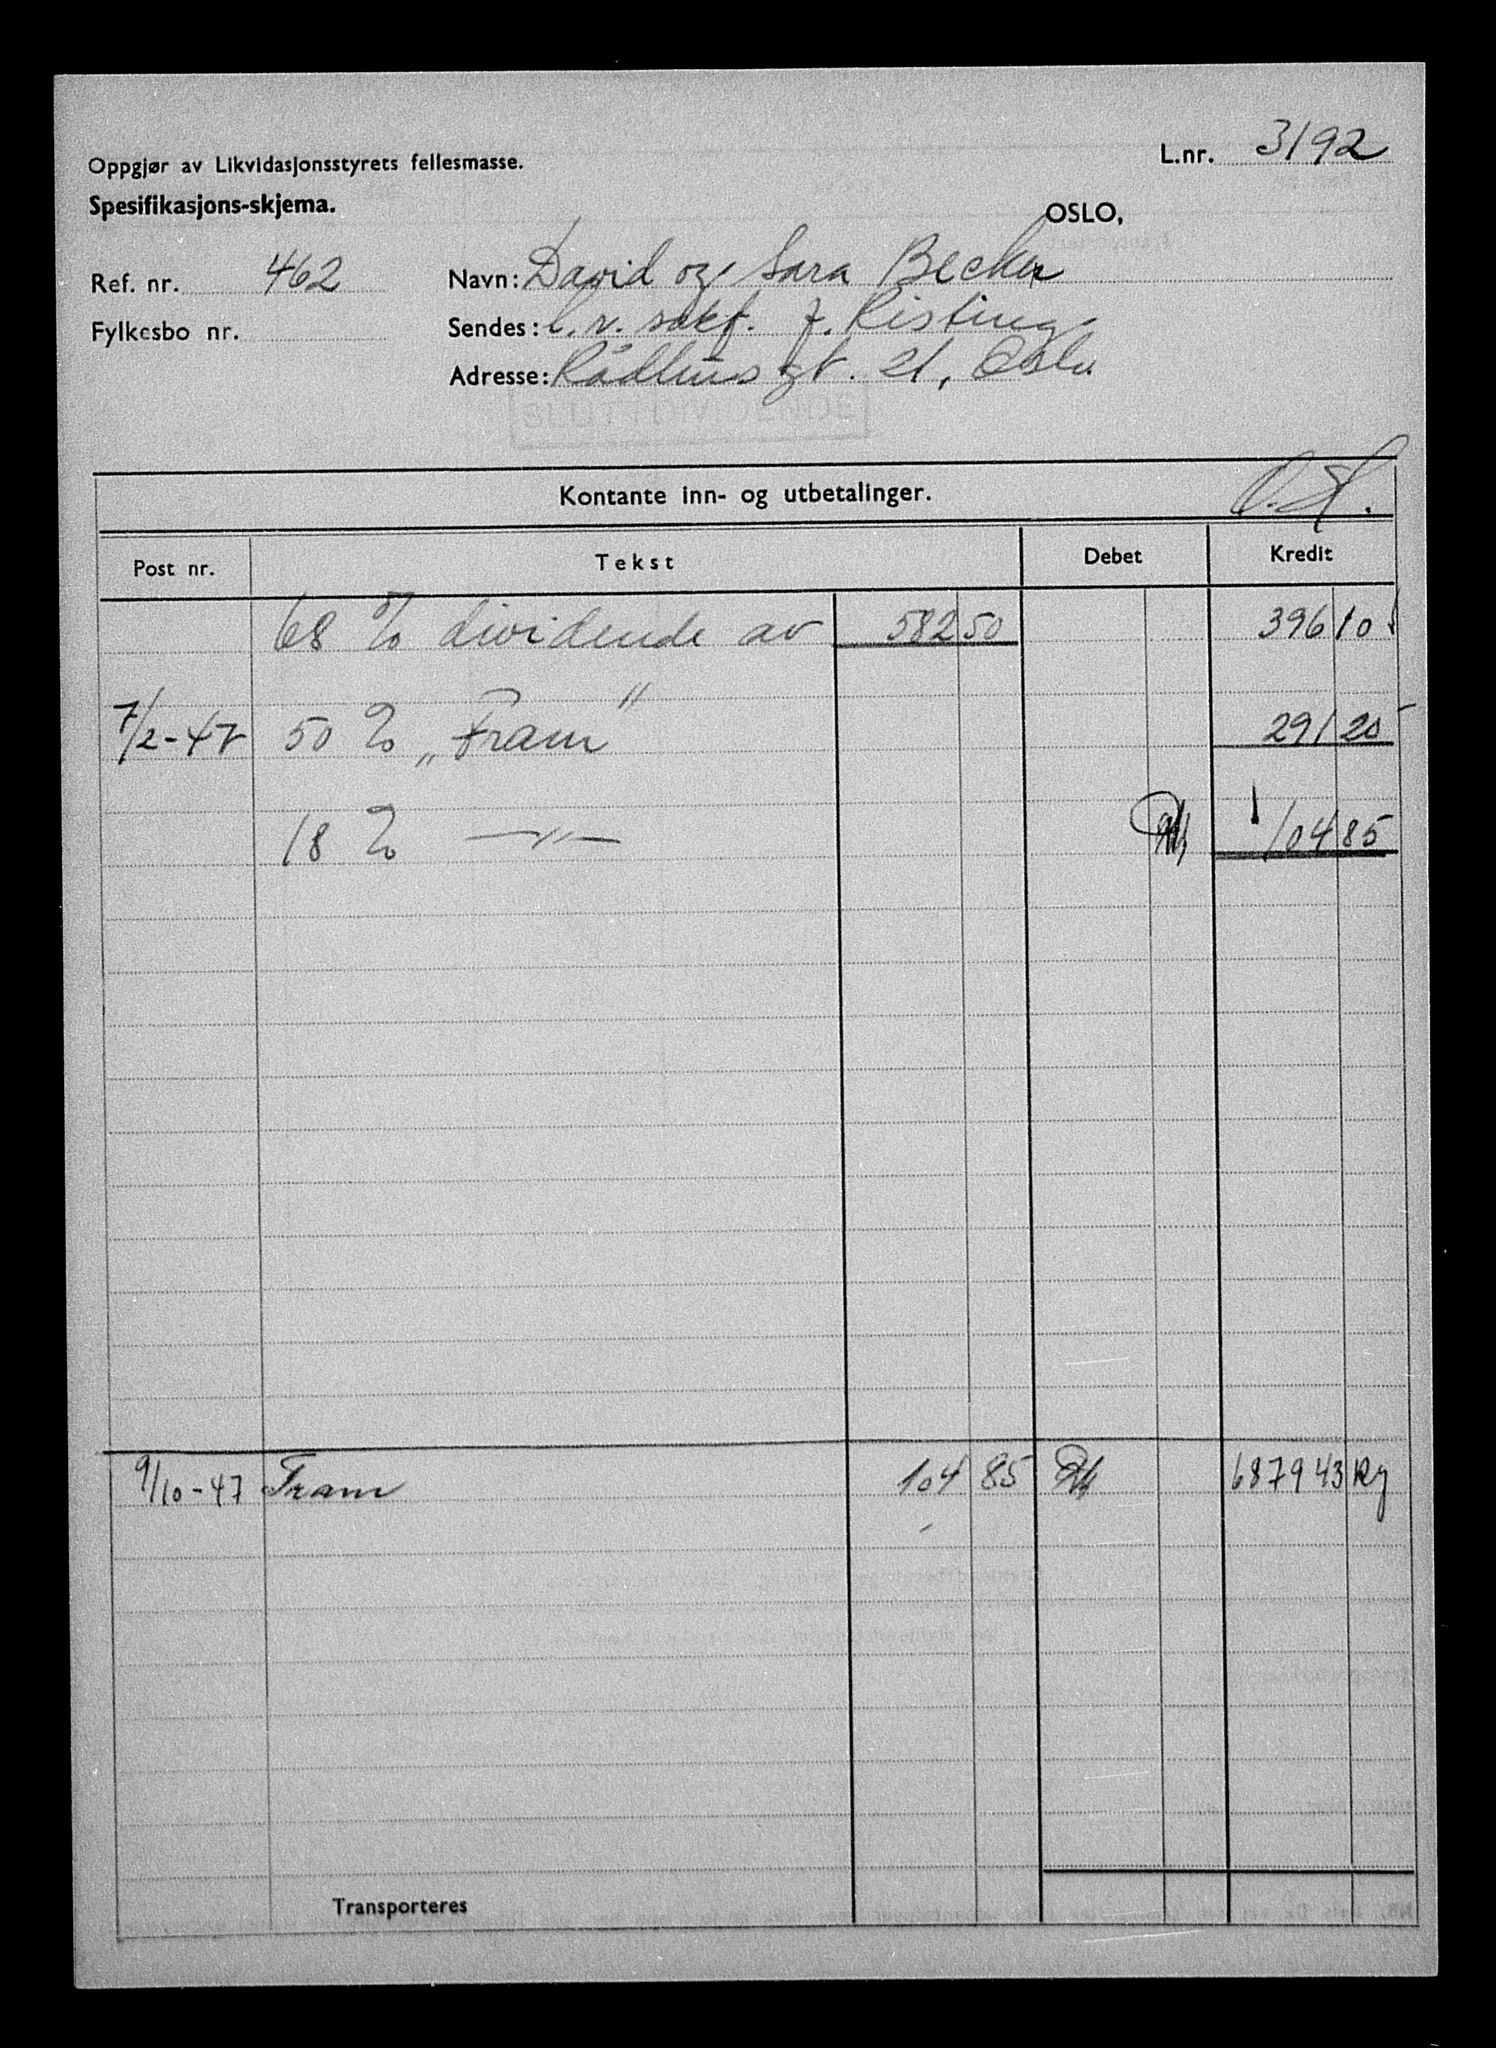 L.nr. 3192
Oppgjør av Likvidasjonsstyrets fellesmasse.
Spesifikasjons-skjema.
OSLO,
Ref. nr. 462
Navn: David og Sara Becker
Fylkesbo nr.
Sendes: v. sakf. J. Risting,
Adresse: Rådhusgt. 21, Oslo
SLUTTDIVIDENDE
Kontante inn- og utbetalinger.
Post nr. Tekst Debet Kredit
68 % dividende av 582 50 396 10
7/2-47 50 % „Fram" 291 20
18 % —"— 104 85
9/10-47 Fram 104 85 687943 Rg
Transporteres